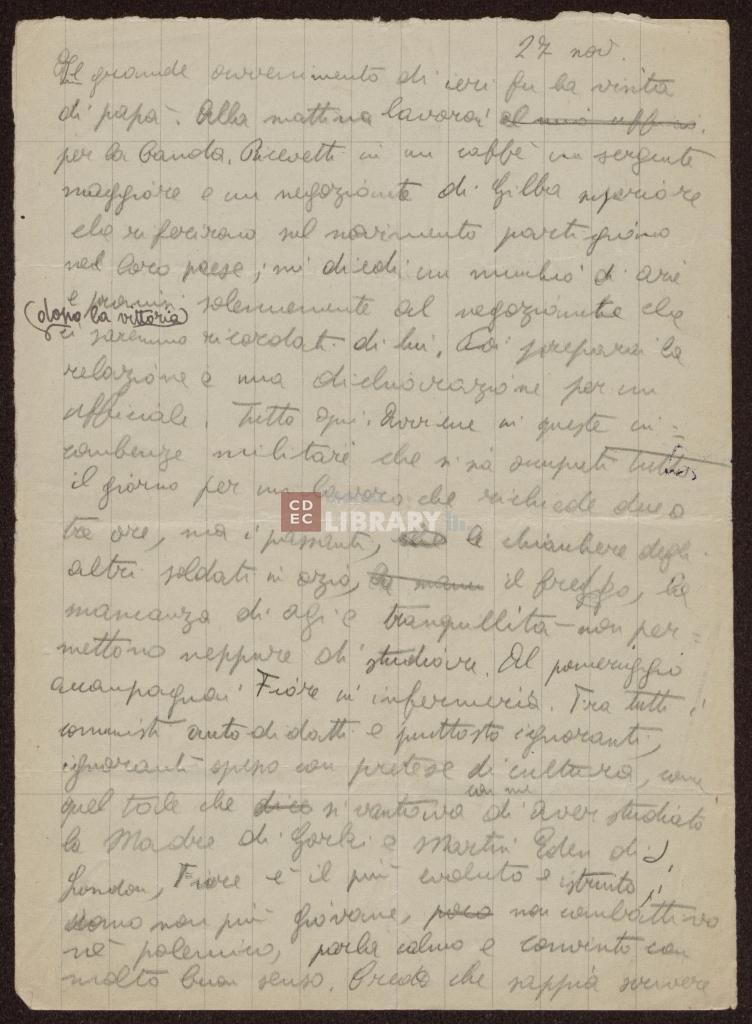 27 nov.
Il grande avvenimento di ieri fu la visita
di papà. Alla mattina lavorai al mio ufficio.
per la banda. Ricevetti in un caffè un sergente
maggiore e un negoziante di Gilba inferiore
che riferirono sul movimento partigiano
nel loro paese; mi diedi un mucchio di arie
e promisi solennemente al negoziante che
(dopo la vittoria)
ci saremmo ricordati di lui. Poi preparai la
relazione e una dichiarazione per un
ufficiale. Tutto qui. Avviene in queste in-
combenze militari che si sia occupati tutto
il giorno per un lavoro che richiede due o
tre ore, ma i passanti, le chiacchiere degli
altri soldati in ozio, la il freddo, la
mancanza di agi e tranquillità non per=
mettono neppure di studiare. Al pomeriggio
accompagnai Fiore in infermeria. Tra tutti i
comunisti autodidatti e piuttosto ignoranti,
ignoranti spesso con pretese di cultura, come
con me
quel tale che dico si vantava di aver studiato
la Madre di Gorki e Martin Eden di
London, Fiore è il più evoluto e istruito;
uomo non più giovane, poco non combattivo
nè polemico, parla calmo e convinto con
molto buon senso. Credo che sappia scrivere
CDEC LIBRARY